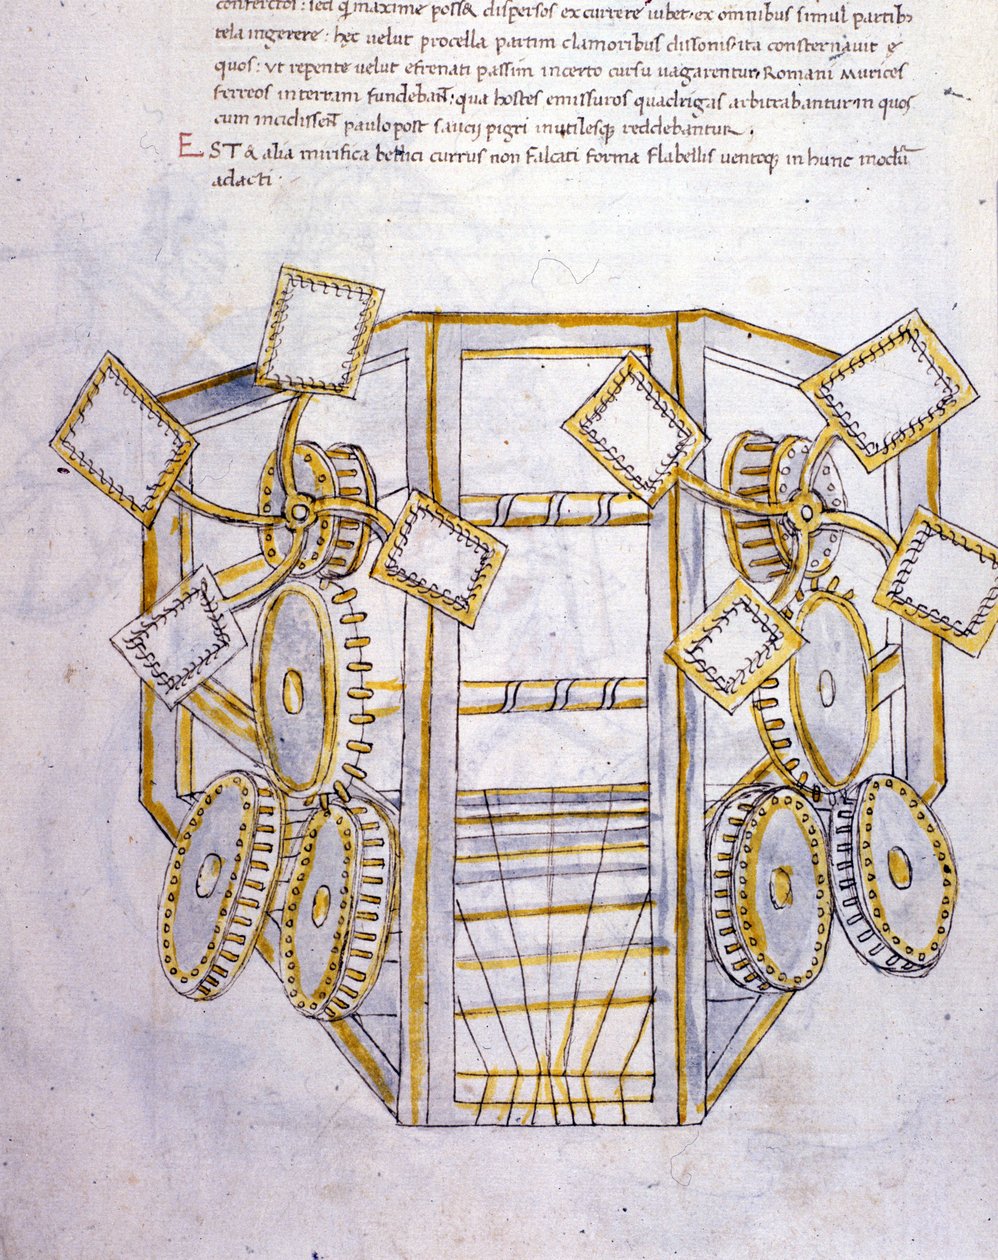 confertos: sed q̃ maxime posset dispersos excurrere iubet, ex omnibus simul partib;
tela ingerere: hęc velut procella partim clamoribus dissonis ita consternauit e
quos: vt repente velut efrenati passim incerto cursu uagarentur. Romani murices
ferreos in terram fundebant, qua hostes emissuros quadrigas arbitrabantur in quos
cum incidissent paulopost saucij pigri inutilesq; reddebantur.
EST & alia mirifica bellici currus non falcati forma flabellis ventoq; in hunc modũ
adacti.